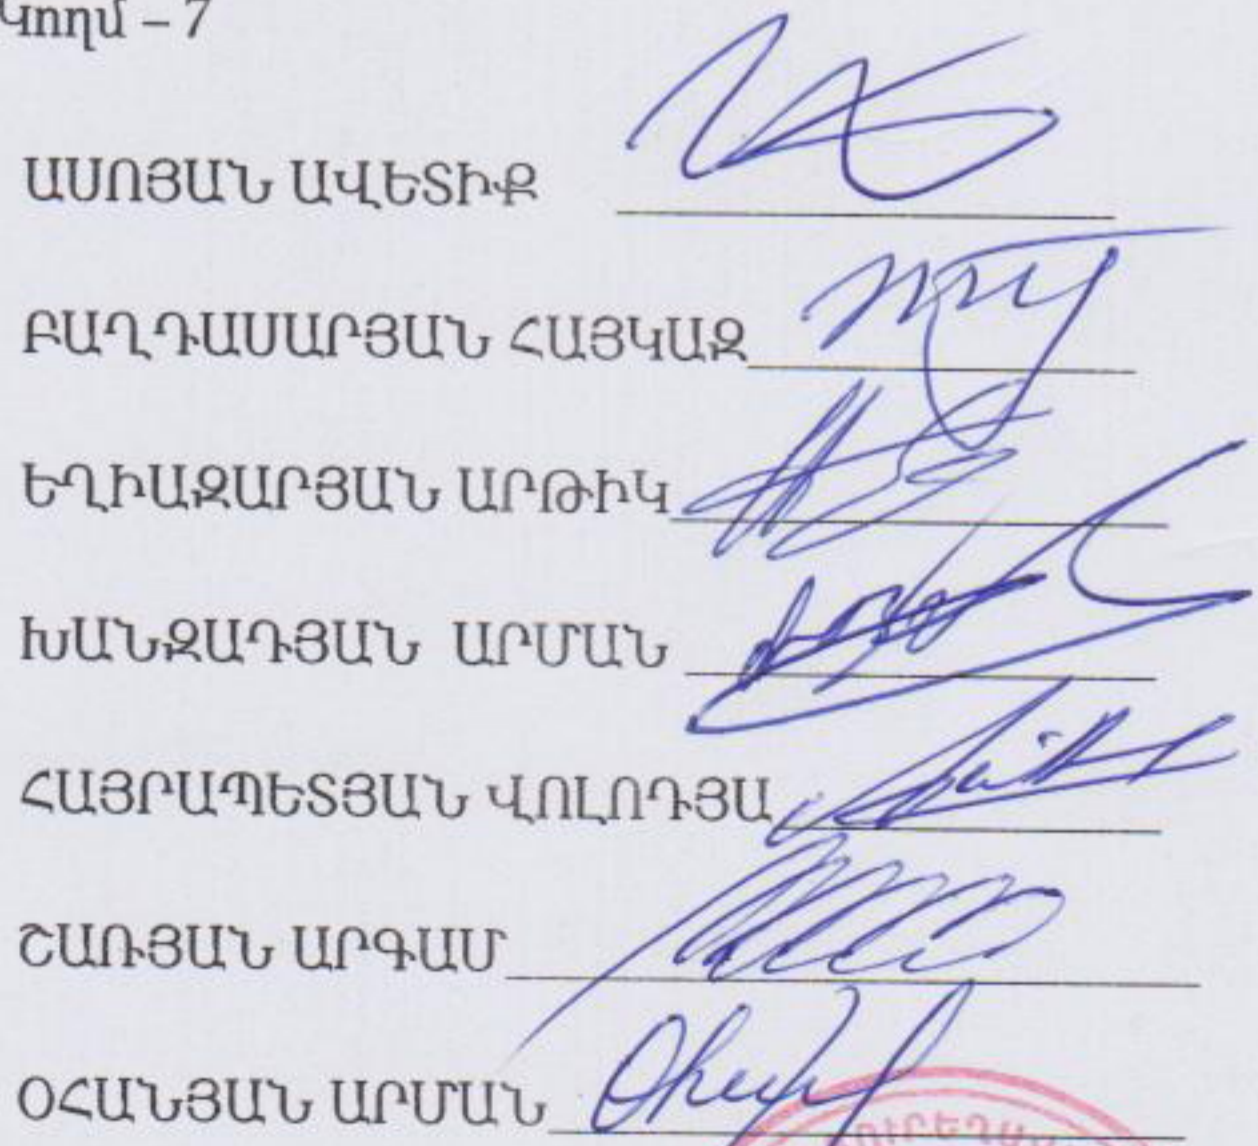 Կողմ – 7
ԱՍՈՅԱՆ ԱՎԵՏԻՔ
ԲԱՂԴԱՍԱՐՅԱՆ ՀԱՅԿԱԶ
ԵՂԻԱԶԱՐՅԱՆ ԱՐԹԻԿ
ԽԱՆԶԱԴՅԱՆ ԱՐՄԱՆ
ՀԱՅՐԱՊԵՏՅԱՆ ՎՈԼՈԴՅԱ
ՇԱՌՅԱՆ ԱՐԳԱՄ
ՕՀԱՆՅԱՆ ԱՐՄԱՆ